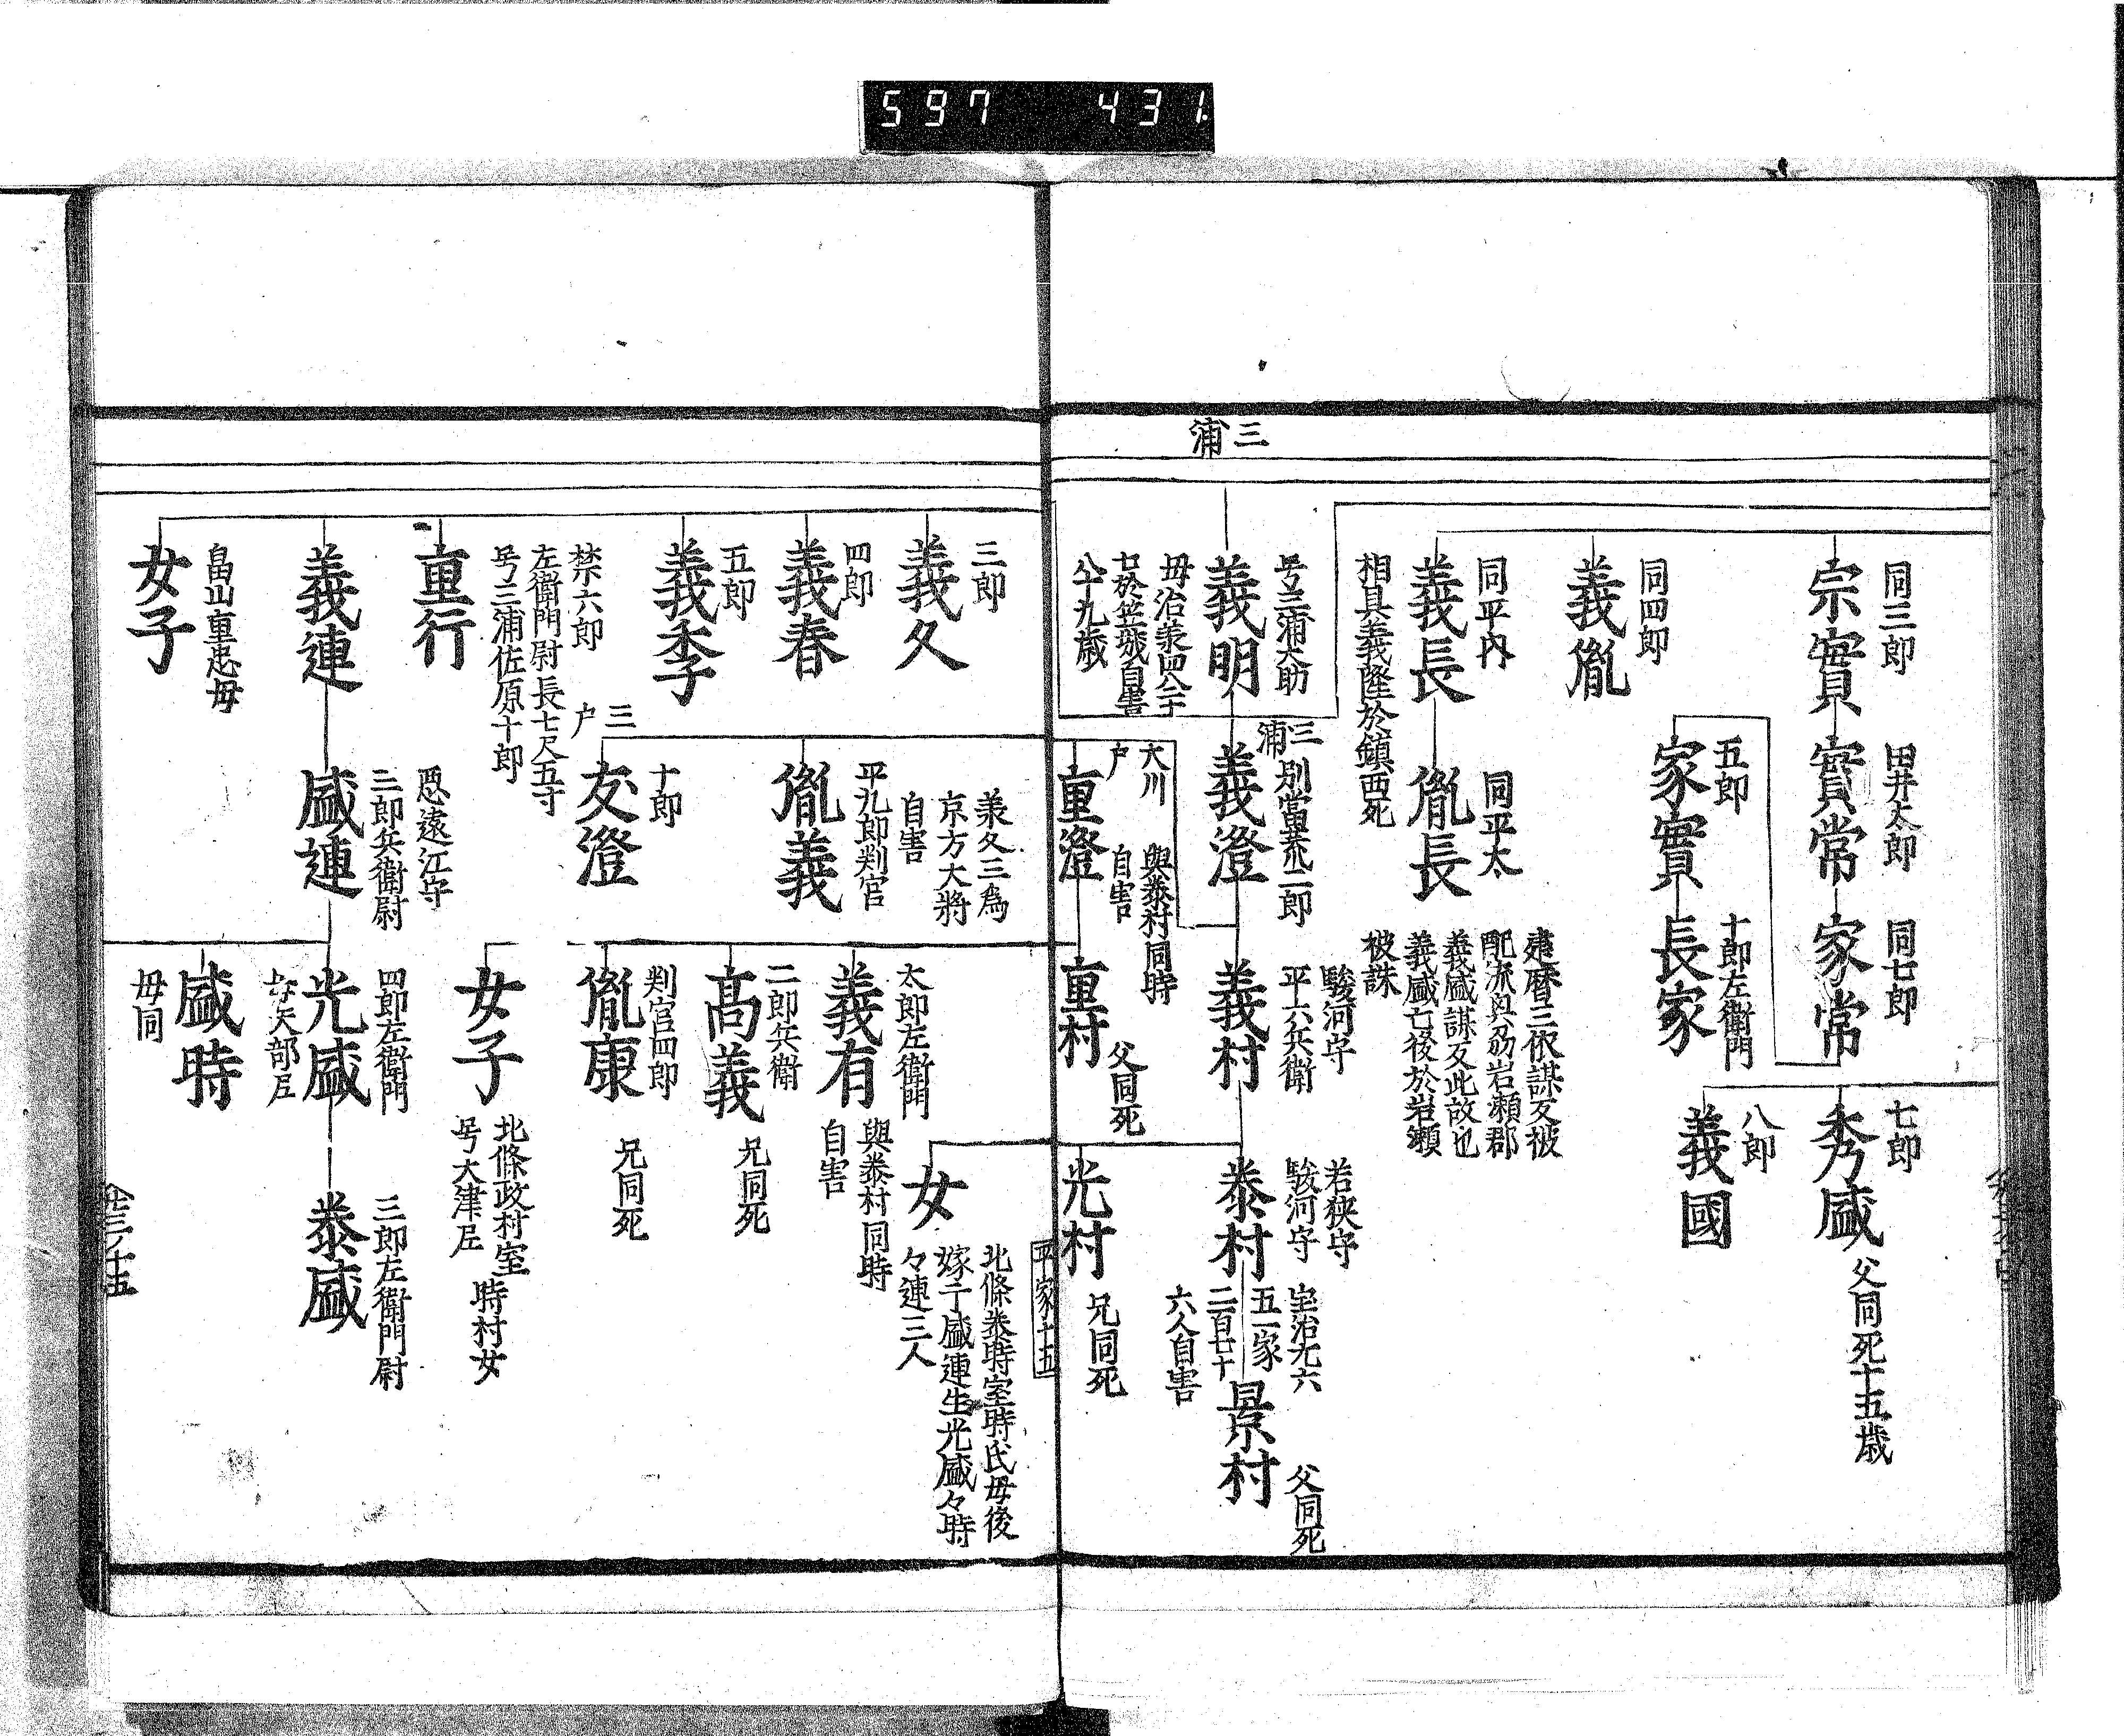 597 431.
三浦
同三郎
宗實
田井太郎
實常
同七郎
家常
五郎
家實
十郎左衛門
長家
七郎
秀盛
父同死十五歳
八郎
義國
同四郎
義胤
同平内
義長
相具義隆於鎮西死
同平太
胤長
建暦三依謀反被
配流奥刕岩瀬郡
義盛謀反此故也
義盛亡後於岩瀬
被誅
号三浦大助
義明
母治義四八廿
七於笠城自害
八十九歳
三浦
別當荒二郎
義澄
駿河守
平六兵衛
義村
若狭守
駿河守
泰村
宝治九六
五一家
二百七十
六人自害
景村
父同死
大川戸
重澄
與泰村同時
自害
重村
父同死
光村
兄同死
平家十五
女
北條泰時室時氏母後
嫁于盛連生光盛々時
々連三人
三郎
義久
四郎
義春
五郎
義季
禁六郎
重行
左衛門尉長七尺五寸
号三浦佐原十郎
義連
畠山重忠母
女子
平九郎判官
胤義
義久三為
京方大將
自害
三戸
十郎
友澄
太郎左衛門
義有
與泰村同時
自害
二郎兵衛
高義
兄同死
判官四郎
胤康
兄同死
女子
北條政村室 時村女
号大津尼
悪遠江守
三郎兵衛尉
盛連
四郎左衛門
光盛
母矢部尼
三郎左衛門尉
泰盛
盛時
母同